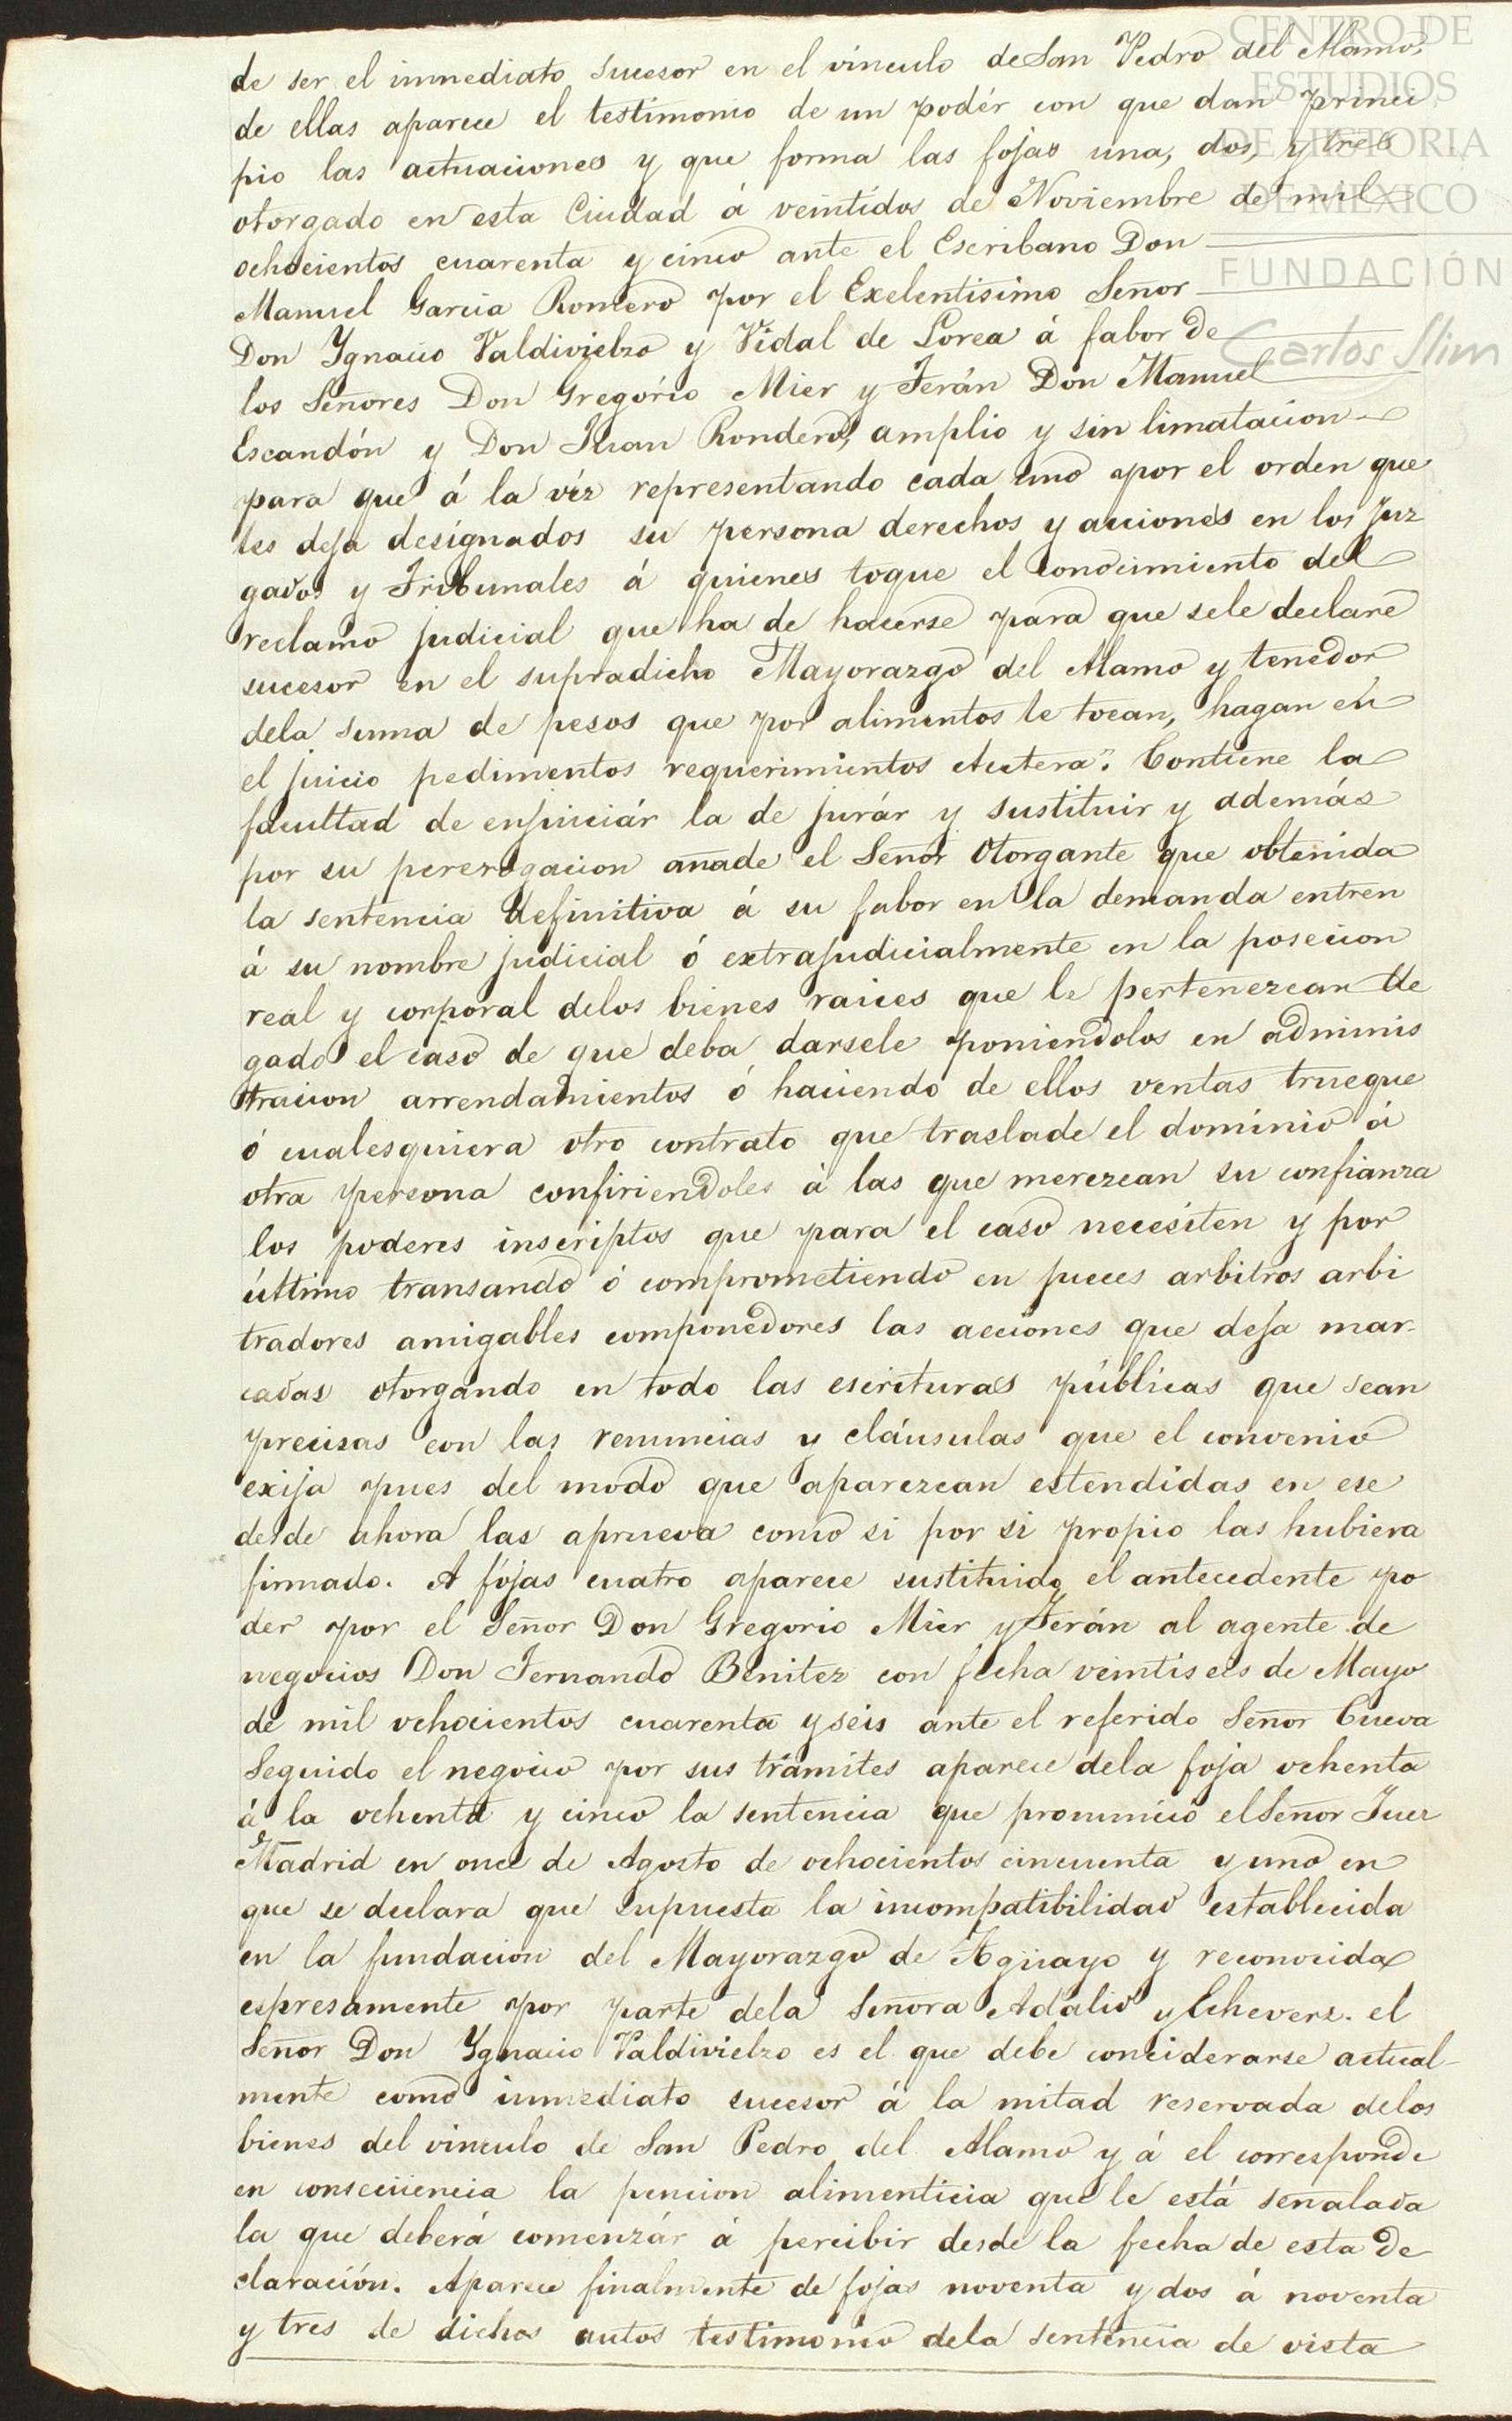 CENTRO DE
ESTUDIOS
DE HISTORIA
DE MÉXICO
FUNDACIÓN
Carlos Slim
de ser el inmediato sucesor en el vinculo de San Pedro del Alamo,
de ellas aparece el testimonio de un podér con que dan princi
pio las actuaciones y que forma las fojas una, dos, y tres
otorgado en esta Ciudad á veintidos de Noviembre de mil
ochocientos cuarenta y cinco ante el Escribano Don
Manuel Garcia Romero por el Exelentisimo Señor
Don Ygnacio Valdivielzo y Vidal de Lorca á fabor de
los Señores Don Gregório Mier y Terán Don Manuel
Escandón y Don Juan Rondero, amplio y sin limatacion
para que á la véz representando cada uno por el orden que
les deja designados su persona derechos y acciones en los Juz
gados y Tribunales á quienes toque el conocimiento del
reclamo judicial que ha de hacerse para que sele declare
sucesor en el supradicho Mayorazgo del Alamo y tenedor
dela suma de pesos que por alimentos le tocan, hagan en
el juicio pedimentos requerimientos etcetera. Contiene la
facultad de enjuiciár la de jurár y sustituir y además
por su pererogacion añade el Señor Otorgante que obtenida
la sentencia definitiva á su fabor en la demanda entren
á su nombre judicial ó extrajudicialmente en la posecion
real y corporal delos bienes raices que le pertenezcan lle
gado el caso de que deba darsele poniendolos en adminis
tracion arrendamientos ó haciendo de ellos ventas trueque
ó cualesquiera otro contrato que traslade el dominio á
otra persona confiriendoles á las que merezcan su confianza
los poderes inscriptos que para el caso necesiten y por
último transando ó comprometiendo en jueces arbitros arbi
tradores amigables componedores las acciones que deja mar-
cadas otorgando en todo las escrituras públicas que sean
precisas con las renuncias y cláusulas que el convenio
exija pues del modo que aparezcan estendidas en ese
desde ahora las aprueva como si por si propio las hubiera
firmado. A fójas cuatro aparece sustituido el antecedente po
der por el Señor Don Gregorio Mier y Terán al agente de
negocios Don Fernando Benitez con fecha veintiseis de Mayo
de mil ochocientos cuarenta y seis ante el referido Señor Cueva
Seguido el negocio por sus trámites aparece dela foja ochenta
á la ochenta y cinco la sentencia que pronunció el Señor Juez
Madrid en once de Agosto de ochocientos cincuenta y uno en
que se declara que supuesta la incompatibilidad establecida
en la fundacion del Mayorazgo de Agüayo y reconocida
espresamente por parte dela Señora Adalid y Echeverz. el
Señor Don Ygnacio Valdivielzo es el que debe conciderarse actual-
mente como inmediato sucesor á la mitad reservada delos
bienes del vinculo de San Pedro del Alamo y á el corresponde
en consecüencia la pencion alimenticia que le está señalada
la que deberá comenzár á percibir desde la fecha de esta de
claración. Aparece finalmente de fojas noventa y dos á noventa
y tres de dichos autos testimonio dela sentencia de vista